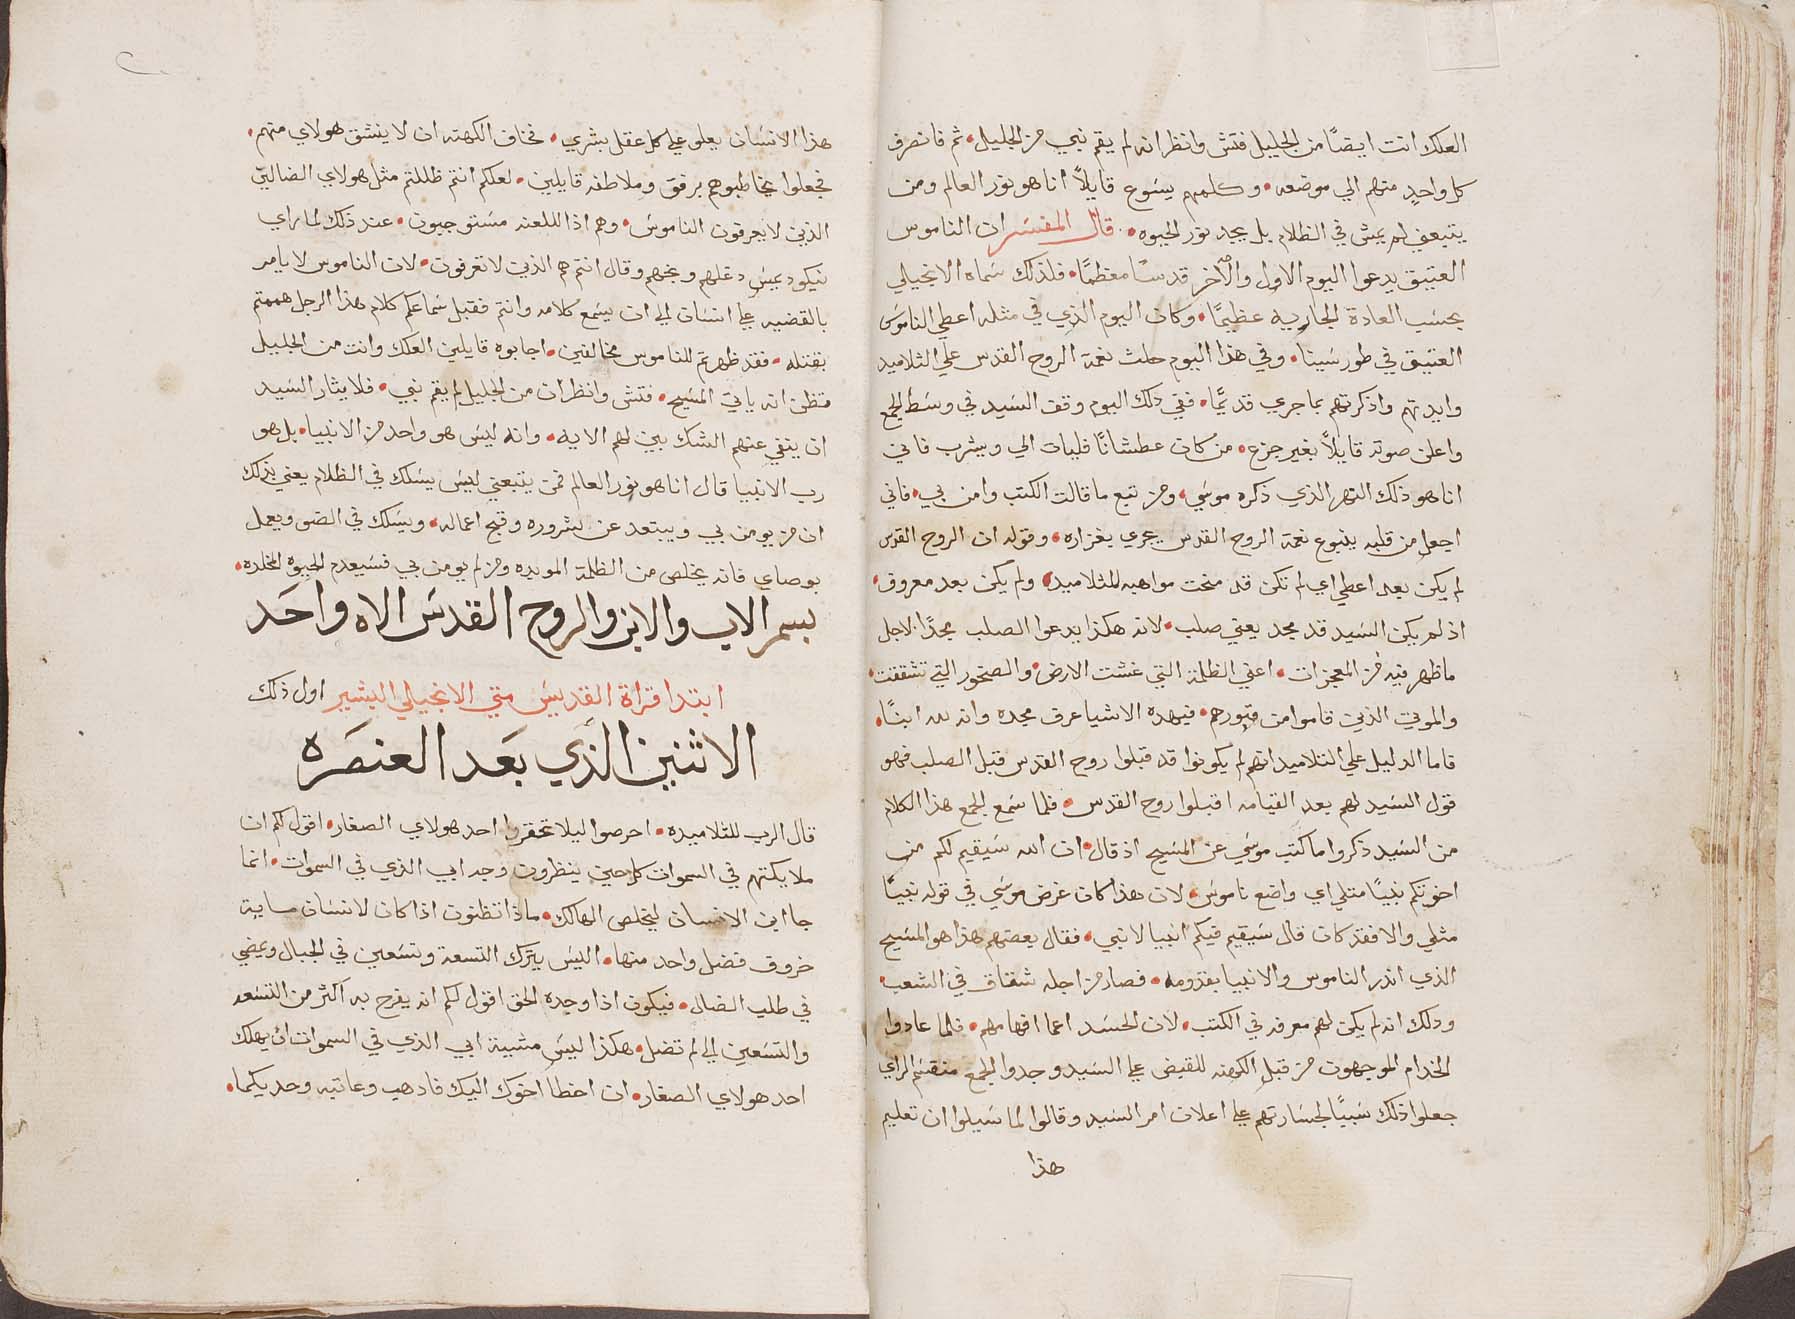 العلك انت ايضًا من الجليل فتش وانظر انه لم يقم نبي من الجليل • ثم فانصرف
كل واحدٍ منهم الي موضعه • وكلمهم يسوع قايلًا انا هو نور العالم ومن
يتبعني لم يمش في الظلام بل يجد نور الحيوه • قال المفسر ان الناموس
العتيق يدعوا اليوم الاول والآخر قدسًا معظمًا • فلذلك سماه الانجيلي
بحسب العادة الجارية عظيمًا • وكان اليوم الذي في مثله اعطي الناموس
العتيق في طور سينا • وفي هذا اليوم حلت نعمة الروح القدس علي التلاميد
وايدتهم واذكرتهم بما جري قديمًا • ففي ذلك اليوم وقف السيد في وسط الجمع
واعلن صوته قايلًا بغير جزع • من كان عطشانًا فليات الي ويشرب فاني
انا هو ذلك النهر الذي ذكره موسي • ومن تبع ما قالت الكتب وامن بي • فاني
اجعل من قلبه ينبوع نعمة الروح القدس يجري بغزاره • وقوله ان الروح القدس
لم يكن بعد اعطي اي لم تكن قد منحت مواهبه للتلاميد • ولم يكن بعد معروف •
اذ لم يكن السيد قد مجد يعني صلب • لانه هكذا يدعوا الصلب مجدًا لاجل
ما ظهر فيه من المعجزات • اعني الظلمة التي غشت الارض • والصخور التي تشققت •
والموتي الذين قاموا من قبورهم • فبهذه الاشيا عرف مجده وانه لله ابنًا •
فاما الدليل علي التلاميد انهم لم يكونوا قد قبلوا روح القدس قبل الصلب فهو
قول السيد لهم بعد القيامه اقبلوا روح القدس • فلما سمع الجمع هذا الكلام
من السيد ذكروا ما كتب موسي عن المسيح اذ قال • ان الله سيقيم لكم من
اخوتكم نبيًا مثلي اي واضع ناموس • لان هذا كان غرض موسي في قوله نبيًا
مثلي والا فقد كان قال سيقيم فيكم انبيا لا نبي • فقال بعضهم هذا هو المسيح
الذي انذر الناموس والانبيا بقدومه • فصار من اجله شقاق في الشعب •
وذلك انه لم يكن لهم معرفه في الكتب • لان الحسد اعما افهامهم • فلما عادوا
الخدام الموجهون من قبل الكهنه للقبض علي السيد وجدوا الجمع منقسم الراي
جعلوا ذلك سببًا لجسارتهم علي اعلان امر السيد وقالوا لما سيلوا ان تعليم
هذا
هذا الانسان يعلو علي كل عقل بشري • فخاف الكهنه ان لا ينشق هولاي منهم •
فجعلوا يخاطبوهم برفق وملاطفه قايلين • لعلكم انتم ظللتم مثل هولاي الضالين
الذين لا يعرفون الناموس • وهم اذا اللعنه مستوجبون • عند ذلك لما راي
نيكوديمس دغلهم وبخهم وقال انتم هم الذين لا تعرفون • لان الناموس لا يامر
بالقضيه علي انسان الي ان يسمع كلامه وانتم فقبل سماعكم كلام هذا الرجل هممتم
بقتله • فقد ظهرتم للناموس مخالفين • اجابوه قايلين العلك وانت من الجليل
تظن انه ياتي المسيح • فتش وانظر ان من الجليل لم يقم نبي • فلايثار السيد
ان ينفي عنهم الشك بين لهم الايه • وانه ليس هو واحد من الانبيا • بل هو
رب الانبيا قال انا هو نور العالم فمن يتبعني ليس يسلك في الظلام يعني بذلك
ان من يومن بي ويبتعد عن شروره وقبح اعماله • ويسلك في الضو ويعمل
بوصاي فانه يخلص من الظلمة الموبده ومن لم يومن بي فسيعدم الحيوه المخلده •
بسم الاب والابن والروح القدس الاه واحد
ابتدا قراة القديس متي الانجيلي البشير اول ذلك
الاثنين الذي بعد العنصره
قال الرب للتلاميده • احرصوا ليلا تحقروا احد هولاي الصغار • اقول لكم ان
ملايكتهم في السموات كل حين ينظرون وجه ابي الذي في السموات • انما
جا ابن الانسان ليخلص الهالك • ماذا تظنون اذا كان لانسان ماية
خروف فضل واحد منها • اليس يترك التسعة وتسعين في الجبال ويمضي
في طلب الضال • فيكون اذا وجده الحق اقول لكم انه يفرح به اكثر من التسعه
والتسعين الي لم تضل • هكذا ليس مشيية ابي الذي في السموات ان يهلك
احد هولاي الصغار • ان اخطا اخوك اليك فادهب وعاتبه وحديكما •